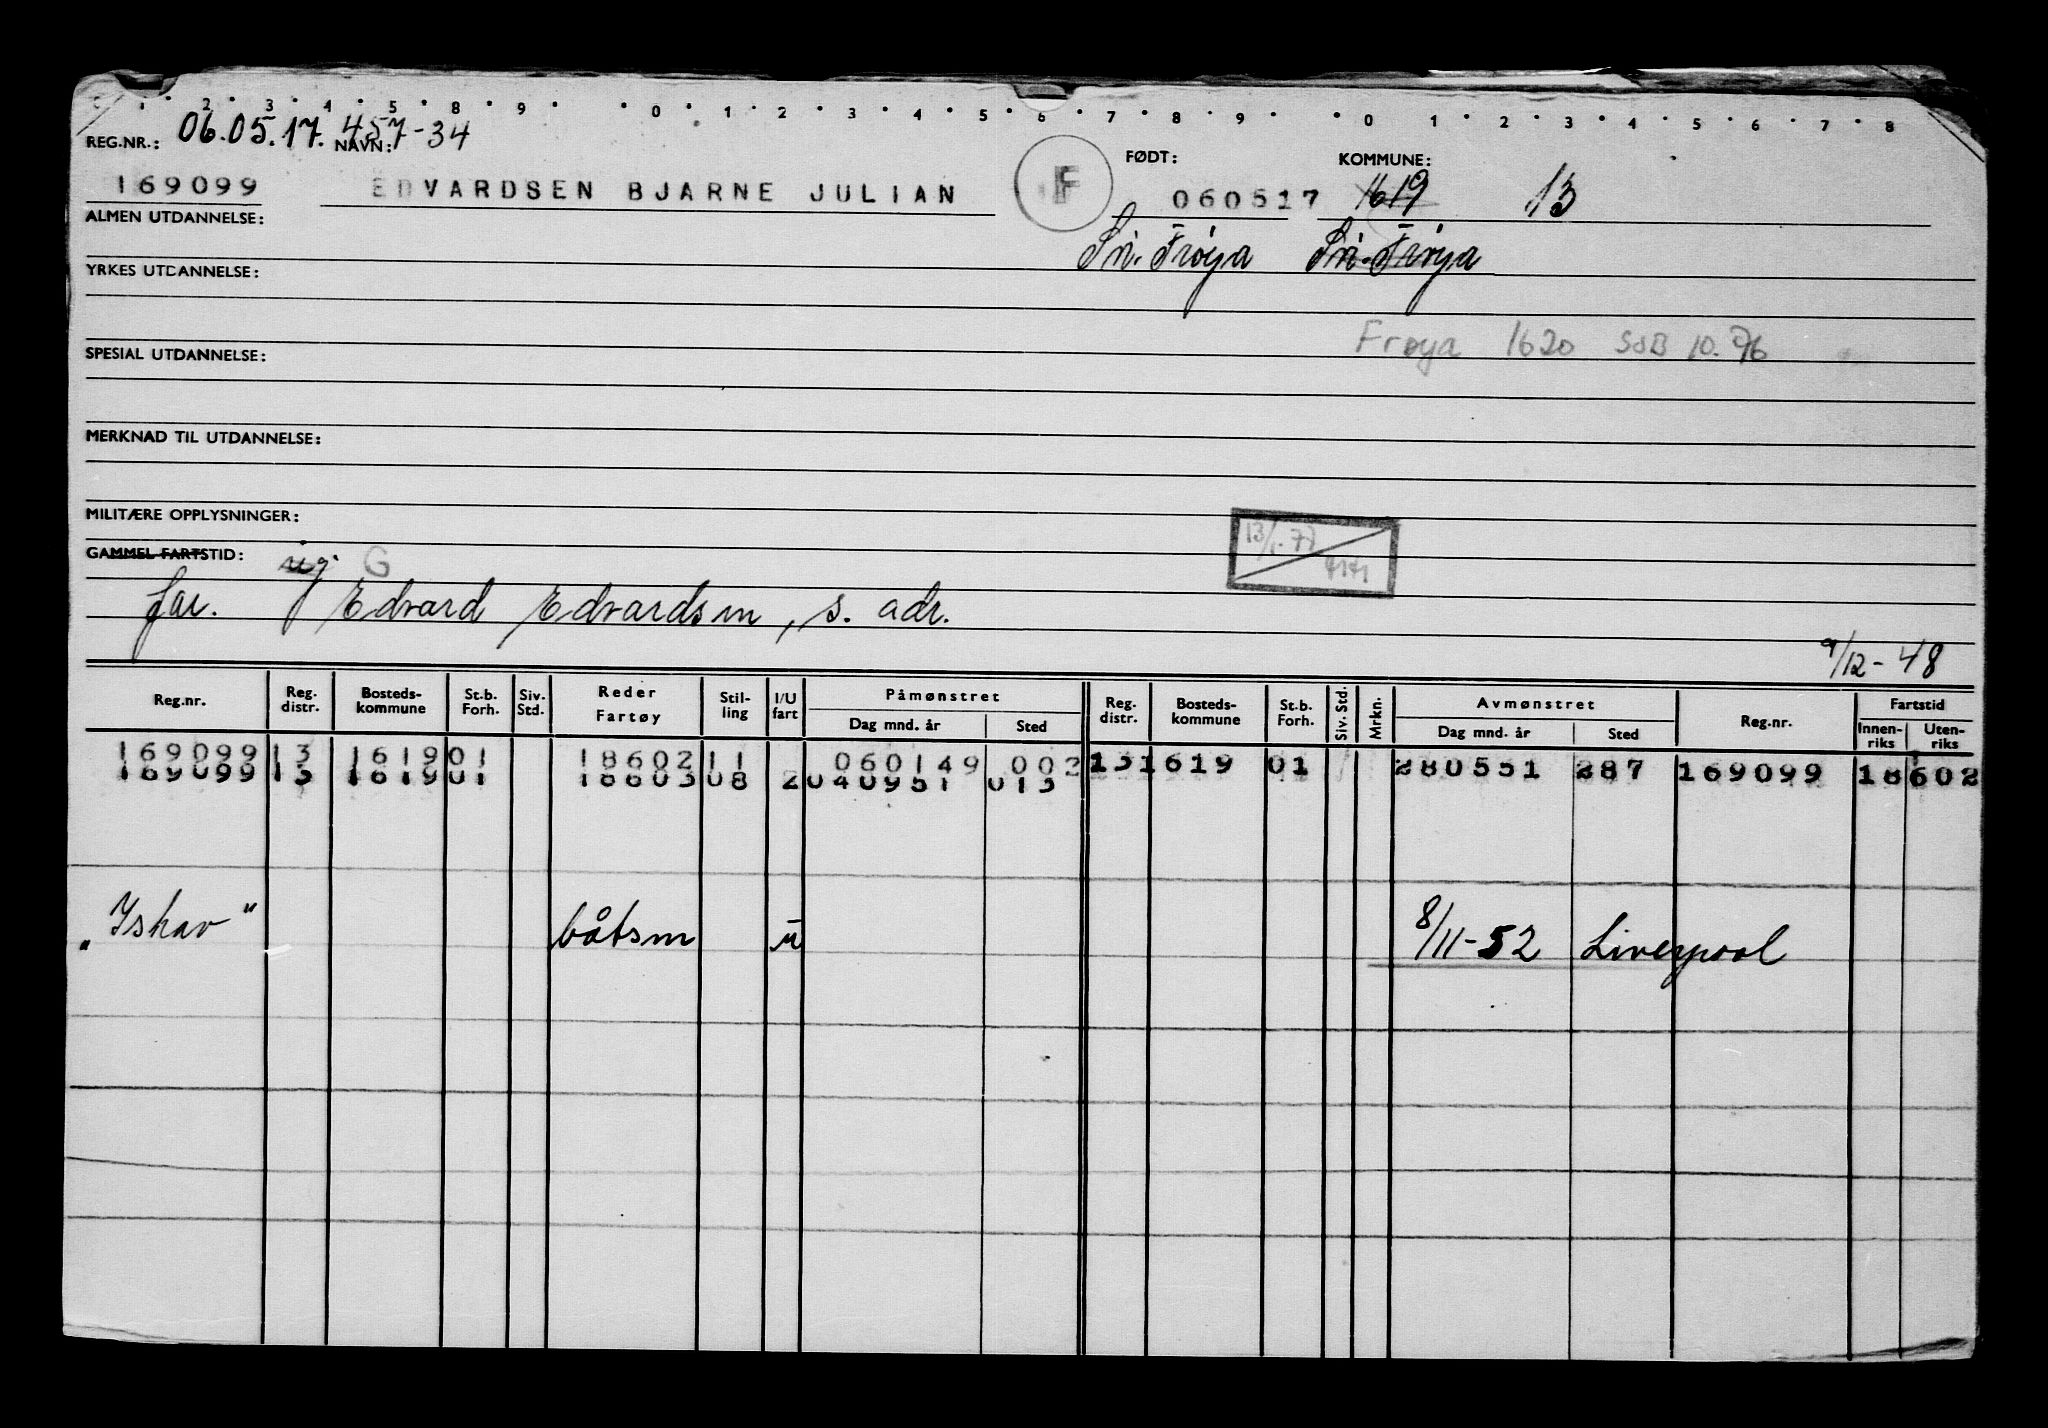 1 2 3 4 5 8 9 0 1 2 3 4 5 6 7 8 9 0 1 2 3 4 5 6 7 8
REG.NR.: 06.05.17. 457-34 NAVN:
FØDT: KOMMUNE:
169099 EDVARDSEN BJARNE JULIAN F 060517 1619 13
ALMEN UTDANNELSE:
Sør-Frøya Sør-Frøya
YRKES UTDANNELSE:
Frøya 1620 SSB 10.76
SPESIAL UTDANNELSE:
MERKNAD TIL UTDANNELSE:
MILITÆRE OPPLYSNINGER:
13/1-77
GAMMEL FARTSTID: G
far. Edvard Edvardsen, s. adr.
9/12-48
Reg.nr. Reg. distr. Bosteds-kommune St.b. Forh. Siv. Std. Reder Fartøy Stil-ling I/U fart Påmønstret Dag mnd. år Sted Reg. distr. Bosteds-kommune St.b. Forh. Siv. Std. Mrkn. Avmønstret Dag mnd. år Sted Reg.nr. Fartstid Innen-riks Uten-riks
169099 13 1619 01 18602 11 060149 002 13 1619 01 280551 287 169099 18602
169099 13 1619 01 18603 08 2 040951 013
„Iskav" båtsm u 8/11-52 Liverpool